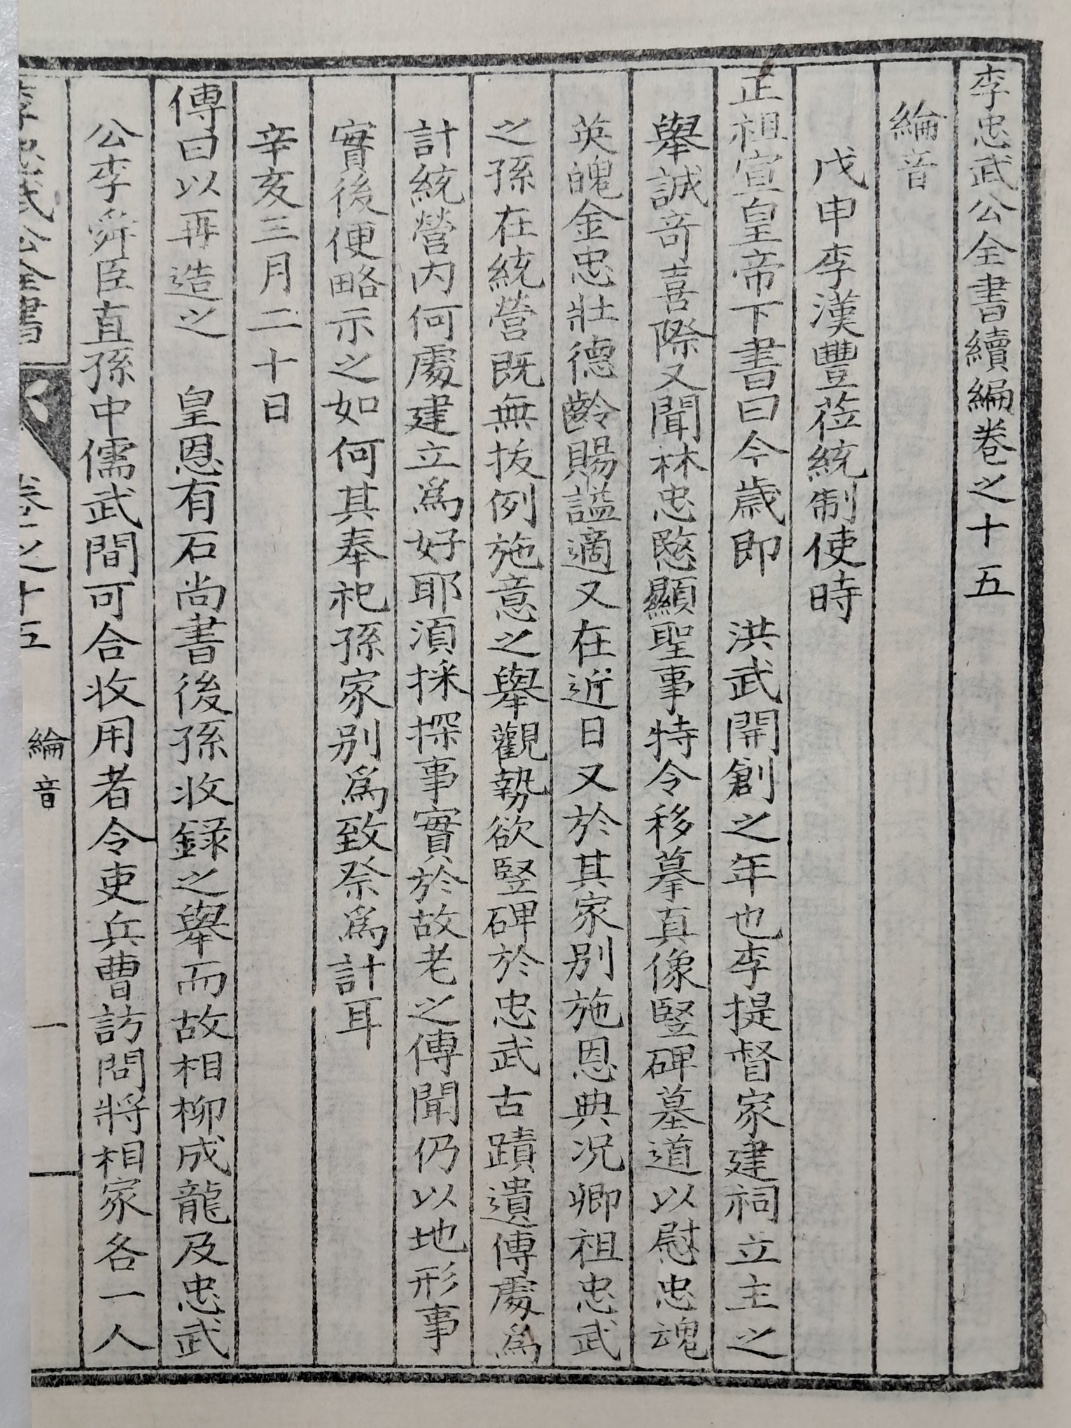 李忠武公全書續編卷之十五
綸音
戊申李漢豐莅統制使時
正祖宣皇帝下書曰今歲即 洪武開創之年也李提督家建祠立主之
舉誠奇喜際又聞林忠愍顯聖事特令移摹真像竪碑墓道以慰忠魂
英魄金忠壯德齡賜謚適又在近日又於其家別施恩典况卿祖忠武
之孫在統營既無拔例施意之舉觀勢欲竪碑於忠武古蹟遺傳處爲
計統營内何處建立爲好耶湏採探事實於故老之傳聞仍以地形事
實後便略示之如何其奉祀孫家别爲致祭爲計耳
辛亥三月二十日
傳曰以再造之 皇恩有石尚書後孫收録之舉而故相柳成龍及忠武
公李舜臣直孫中儒武間可合收用者令吏兵曹訪問將相家各一人
李忠武公全書 卷之十五 綸音 一